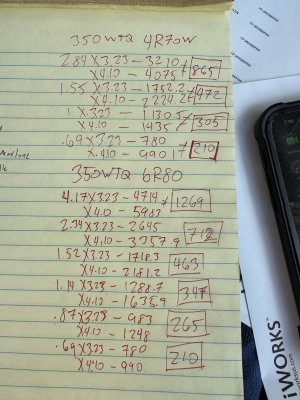 350WTQ 4R70W
2.84X3.23-3210
X4.10-4075 865
1.55X3.23-1752.2
X4.10-2224.2 472
1X3.23-1130.5
X4.10-1435 305
.69X3.23-780
X4.10-990.1 210
350WTQ 6R80
4.17X3.23-4714
X4.10-5983 1269
2.34X3.23-2645
X4.10-3357.9 712
1.52X3.23-1718.3
X4.10-2181.2 463
1.14X3.23-1288.7
X4.10-1635.9 347
.87X3.23-983
X4.10-1248 265
.69X3.23-780
X4.10-990 210
iWORKS